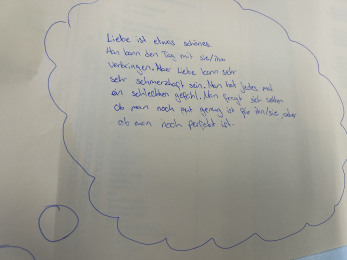 Liebe ist etwas schönes.
Man kann den Tag mit sie/ihn
verbringen. Aber Liebe kann sehr
sehr schmerzhaft sein. Man hat jedes mal
ein schlechten gefühl. Man fragt sich selber
ob man noch gut genug ist für ihn/sie oder
ob man noch perfekt ist.